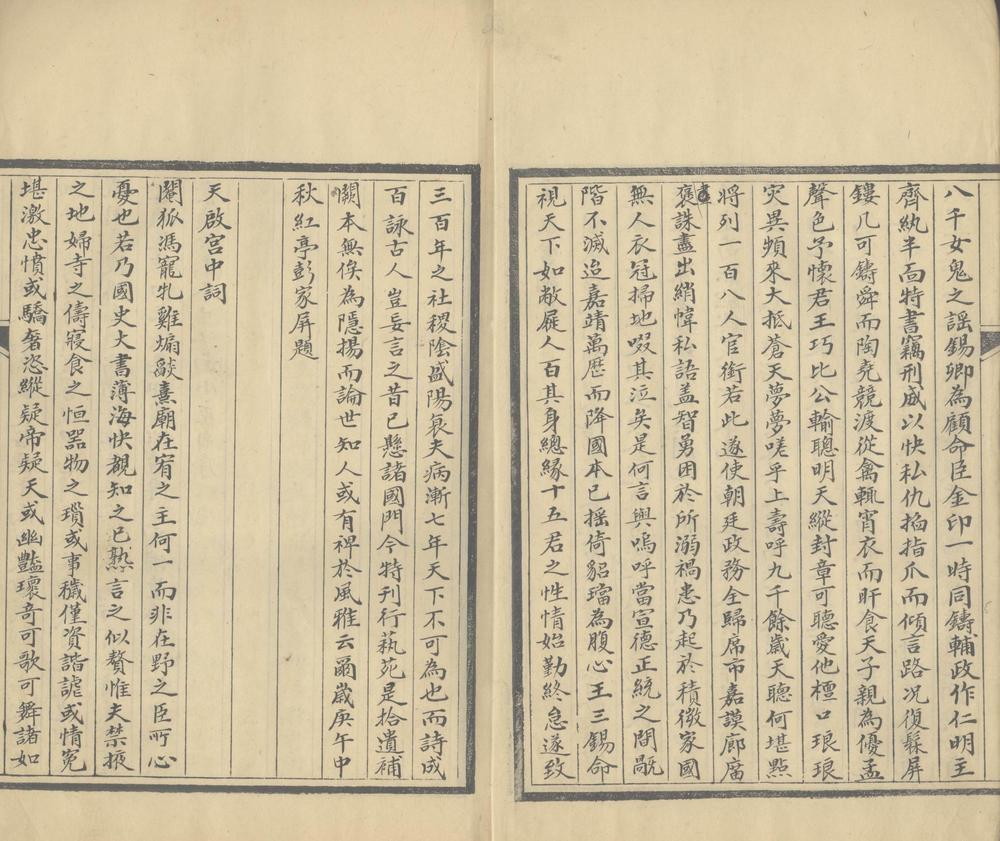 八千女鬼之謡錫卿為顧命臣金印一時同鑄輔政作仁明主
齊紈半面特書竊刑威以快私仇掐指爪而傾言路况復髹屏
鏤几可鑄舜而陶堯競渡從禽輒宵衣而旰食天子親為優孟
聲色予懷君王巧比公輸聰明天縱封章可聽愛他檀口琅琅
灾異頻來大抵蒼天夢夢嗟乎上壽呼九千餘歲天聽何堪點
將列一百八人官銜若此遂使朝廷政務全歸席市嘉謨廊腐
褒誅盡出綃幃私語盖智勇困於所溺禍患乃起於積微家國
無人衣冠掃地啜其泣矣是何言與嗚呼當宣德正統之間厩
階不滅迨嘉靖萬歷而降國本已摇倚貂璫為腹心王三錫命
視天下如敝屣人百其身總緣十五君之性情始勤終怠遂致
三百年之社稷陰盛陽衰夫病漸七年天下不可為也而詩成
百詠古人豈妄言之昔已懸諸國門今特刊行蓺苑是拾遺補
本無俟為隱揚而論世知人或有裨於風雅云爾歲庚午中
秋紅亭彭家屏題
天啟宫中詞
閹狐馮寵牝雞煽燄熹廟在宥之主何一而非在野之臣所心
憂也若乃國史大書薄海快覩知之已熟言之似贅惟夫禁掖
之地婦寺之儔寢食之恒器物之瑣或事穢僅資諧謔或情寃
堪激忠憤或驕奢恣縱疑帝疑天或幽豔瓌奇可歌可舞諸如